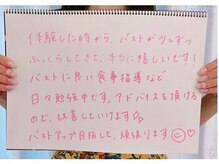 体験した時から、バストが少しずつ
ふっくらしてきて、本当に嬉しいです!
バストに良い食事指導など
日々勉強中です。アドバイスを頂ける
ので、改善していけます♡
バストアップ目指して、頑張ります☺♡